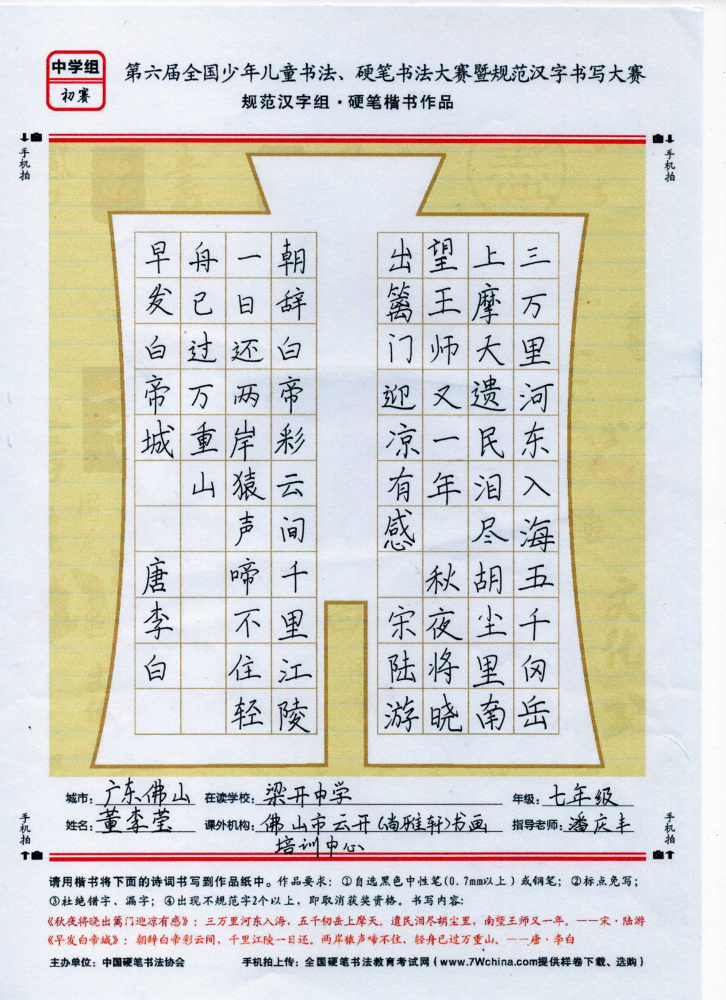 中学组
初赛
第六届全国少年儿童书法、硬笔书法大赛暨规范汉字书写大赛
规范汉字组·硬笔楷书作品
手机拍
手机拍
三万里河东入海五千仞岳
上摩天遗民泪尽胡尘里南
望王师又一年 秋夜将晓
出篱门迎凉有感 宋陆游
朝辞白帝彩云间千里江陵
一日还两岸猿声啼不住轻
舟已过万重山
早发白帝城 唐李白
城市：广东佛山 在读学校：梁开中学 年级：七年级
姓名：董李莹 课外机构：佛山市云开(尚雅轩)书画 指导老师：潘庆丰
培训中心
手机拍
手机拍
请用楷书将下面的诗词书写到作品纸中。作品要求：①自选黑色中性笔(0.7mm以上)或钢笔；②标点免写；
③杜绝错字、漏字；④出现不规范字2个以上，即取消获奖资格。书写内容：
《秋夜将晓出篱门迎凉有感》：三万里河东入海，五千仞岳上摩天。遗民泪尽胡尘里，南望王师又一年。——宋·陆游
《早发白帝城》：朝辞白帝彩云间，千里江陵一日还。两岸猿声啼不住，轻舟已过万重山。——唐·李白
主办单位：中国硬笔书法协会 手机拍上传：全国硬笔书法教育考试网（www.7Wchina.com提供样卷下载、选购）